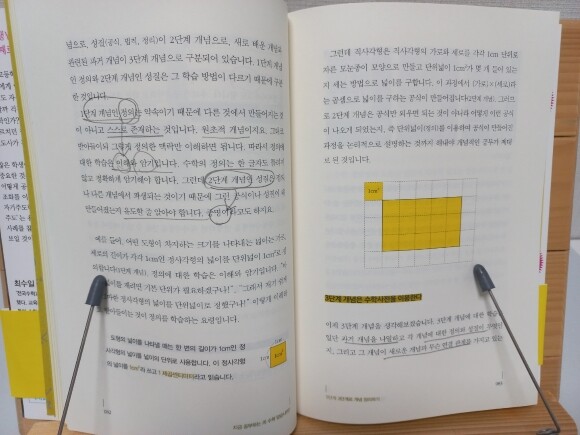 념으로, 성질(공식, 법칙, 정리)이 2단계 개념으로, 새로 배운 개념과
관련된 과거 개념이 3단계 개념으로 구분되어 있습니다. 1단계 개념
인 정의와 2단계 개념인 성질은 그 학습 방법이 다르기 때문에 구분
한 것입니다.
1단계 개념인 정의는 약속이기 때문에 다른 것에서 만들어지는 것
이 아니고 스스로 존재하는 것입니다. 원초적 개념이지요. 그래서
받아들이되 그렇게 정의한 맥락만 이해하면 됩니다. 따라서 정의에
대한 학습은 이해와 암기입니다. 수학의 정의는 한 글자도 틀리지
않고 정확하게 암기해야 합니다. 그런데 2단계 개념인 성질은 정의
나 다른 개념에서 파생되는 것이기 때문에 그런 공식이나 성질이
만들어졌는지 유도할 줄 알아야 합니다. 증명이라고도 하지요.
예를 들어, 어떤 도형이 차지하는 크기를 나타내는 넓이는 가로,
세로의 길이가 각각 1cm인 정사각형의 넓이를 단위넓이 1cm²로
의합니다(1단계 개념). 정의에 대한 학습은 이해와 암기입니다.
이를 재려면 기본 단위가 필요하겠구나!", "그래서 재기 쉽게
정사각형의 넓이를 단위넓이로 정했구나!" 이렇게 이해하
받아들이는 것이 정의를 학습하는 요령입니다.
도형의 넓이를 나타낼 때는 한 변의 길이가 1cm인 정
사각형의 넓이를 넓이의 단위로 사용합니다. 이 정사각형
의 넓이를 1cm²라 쓰고 1제곱센티미터라고 읽습니다.
1cm
1cm
1cm²
그런데 직사각형은 직사각형의 가로와 세로를 각각 1cm 단위로
자른 모눈종이 모양으로 만들고 단위넓이 1cm²가 몇 개 들어 있는
지 세는 방법으로 넓이를 구합니다. 이 과정에서 (가로)×(세로)라
는 곱셈으로 넓이를 구하는 공식이 만들어집니다(2단계 개념). 그러므
로 2단계 개념은 공식만 외우면 되는 것이 아니라 어떻게 이런 공식
이 나오게 되었는지, 즉 단위넓이(정의)를 이용하여 공식이 만들어진
과정을 논리적으로 설명하는 것까지 해내야 개념적인 공부가 제대
로 된 것입니다.
1cm²
3단계 개념은 수학사전을 이용한다
이제 3단계 개념을 생각해보겠습니다. 3단계 개념에 대한 학습
일단 과거 개념을 나열하고 각 개념에 대한 정의와 성질이 무엇인
지, 그리고 그 개념이 새로운 개념과 무슨 연결 관계를 가지고 있는
최수일